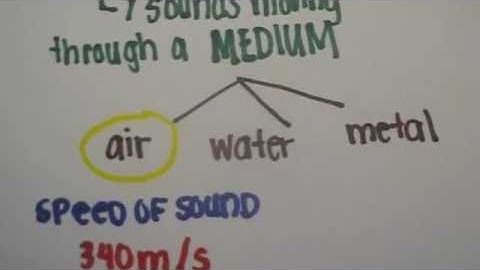 sounds moving
through a MEDIUM
air water metal
SPEED OF SOUND
340m/s